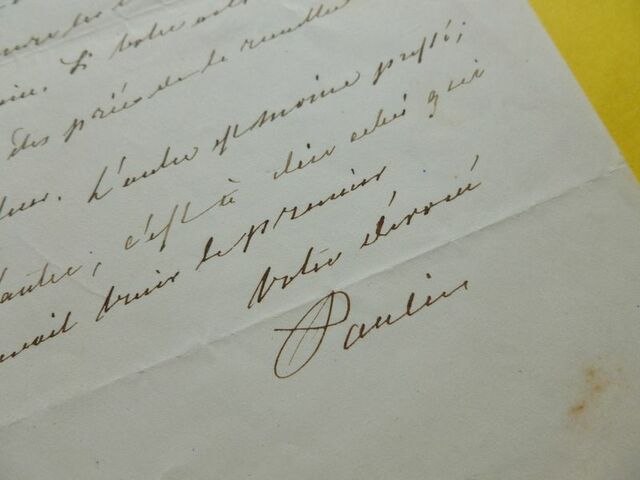 Si votre
êtes prié de le remettre
L'autre est moins pressé;
l'autre, c'est à dire celui qui
avait venir le premier
Votre dévoué
Paulin